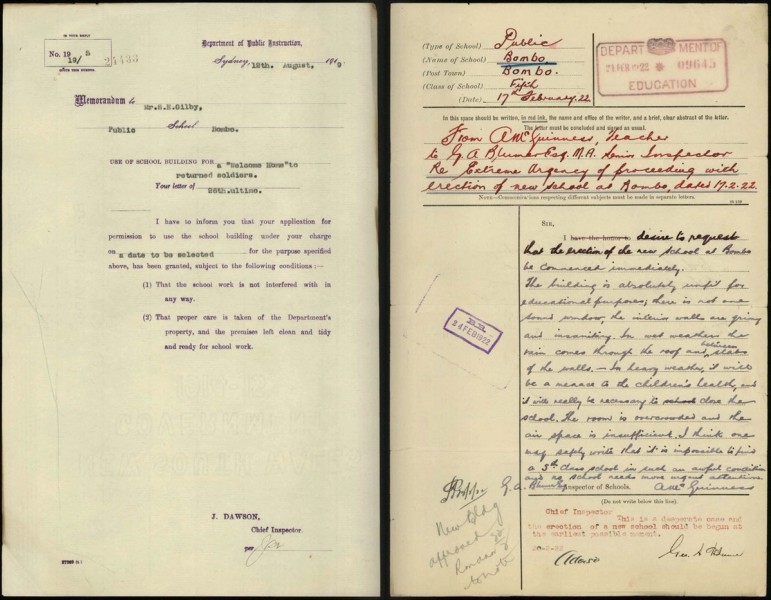 IN YOUR REPLY
No. 19
19/ B
QUOTE THIS NUMBER
Department of Public Instruction,
Sydney, 19th. August, 1919
Memorandum to
Mr.S.E.Gilby,
Public School Bombo.
USE OF SCHOOL BUILDING FOR a "Welcome Home" to
returned soldiers.
Your letter of
28th.ultimo.
I have to inform you that your application for
permission to use the school building under your charge
on a date to be selected for the purpose specified
above, has been granted, subject to the following conditions :—
(1) That the school work is not interfered with in
any way.
(2) That proper care is taken of the Department's
property, and the premises left clean and tidy
and ready for school work.
J. DAWSON,
Chief Inspector.
per
(Type of School) Public
(Name of School) Bombo
(Post Town) Bombo.
(Class of School) Fifth
(Date) 17th February. 22
DEPARTMENT OF
21 FEB 22 09645
EDUCATION
In this space should be written, in red ink, the name and office of the writer, and a brief, clear abstract of the letter.
The letter must be concluded and signed as usual.
From A McGuinness, Teacher
to G. A Blumer Esq. M.A. Senior Inspector
Re Extreme Urgency of proceeding with
erection of new school at Bombo, dated 17.2.22.
NOTE.—Communications respecting different subjects must be made in separate letters.
SIR,
I have the honor to desire to request
that the erection of the new school at Bombo
be commenced immediately.
The building is absolutely unfit for
educational purposes; there is not one
sound window, the interior walls are
and insanitary. In wet weather the
rain comes through the roof and between slabs
of the walls. — In heavy weather, it will
be a menace to the children's health, and
it will really be necessary to school close the
school. The room is overcrowded and the
air space is insufficient. I think one
may safely write that it is impossible to find
a 5th class school in such an awful condition
and no school needs more urgent attention.
24 FEB 1922
G. A. Blumer Esq Inspector of Schools. A McGuinness
(Do not write below this line).
New bldg
approved
to note
Chief Inspector
This is a desperate case and
the erection of a new school should be began at
the earliest possible moment.
20-2-22
Geo. A Blumer